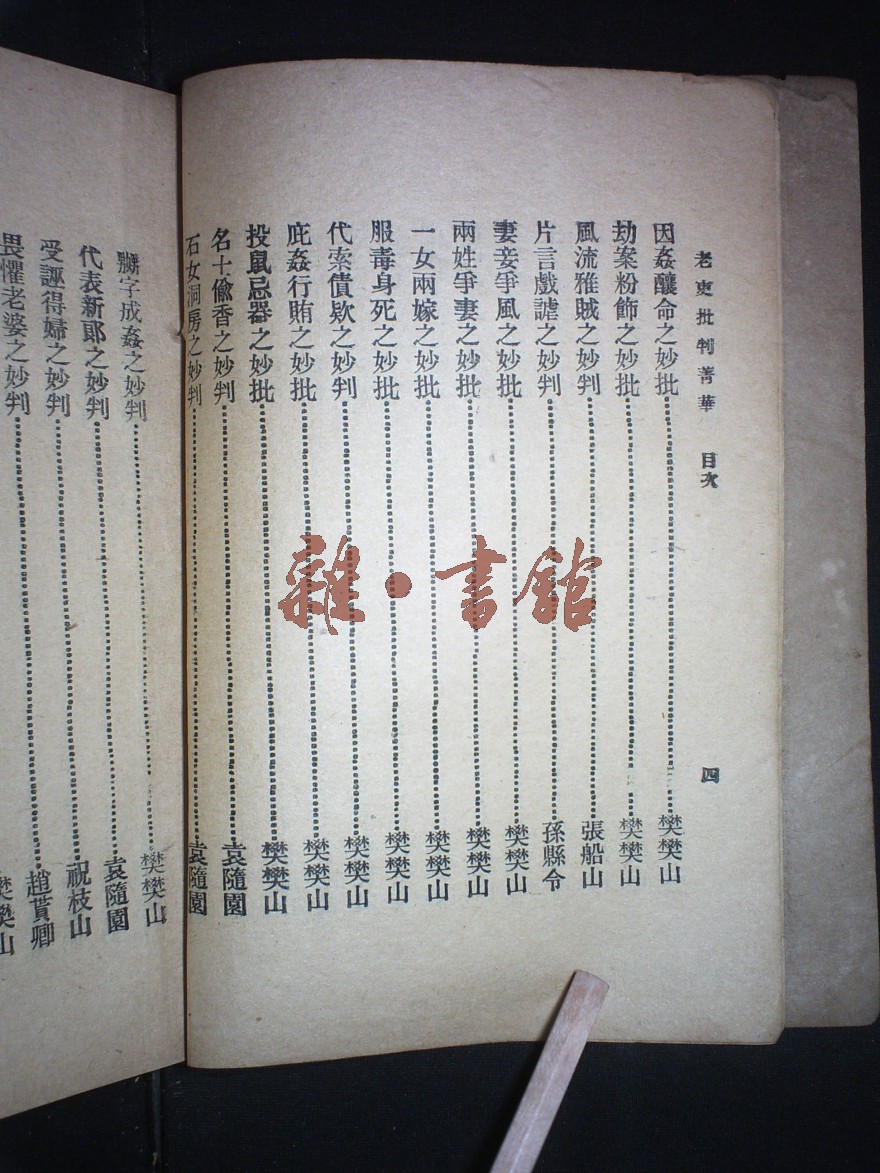 老吏批判菁華 目次 四
因姦釀命之妙批……樊樊山
劫案粉飾之妙批……樊樊山
風流雅賊之妙判……張船山
片言戲謔之妙判……孫縣令
妻妾爭風之妙批……樊樊山
兩姓爭妻之妙批……樊樊山
一女兩嫁之妙批……樊樊山
服毒身死之妙批……樊樊山
代索債欵之妙判……樊樊山
庇姦行賄之妙批……樊樊山
投鼠忌器之妙批……樊樊山
名士偷香之妙判……袁隨園
石女洞房之妙判……袁隨園
嬲字成姦之妙判……樊樊山
代表新郎之妙判……袁隨園
受誣得婦之妙判……祝枝山
畏懼老婆之妙判……趙貰卿
樊樊山
雜·書館